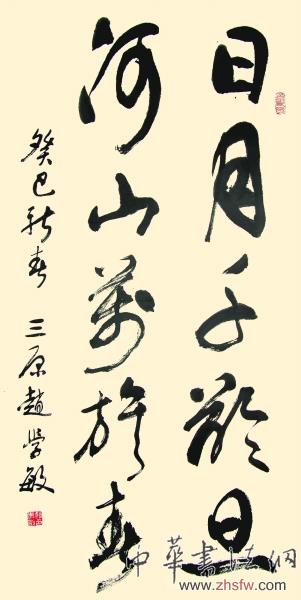 日月千齡旦
河山萬族春
癸巳新春 三原趙學敏
中華書法網
www.zhsfw.com